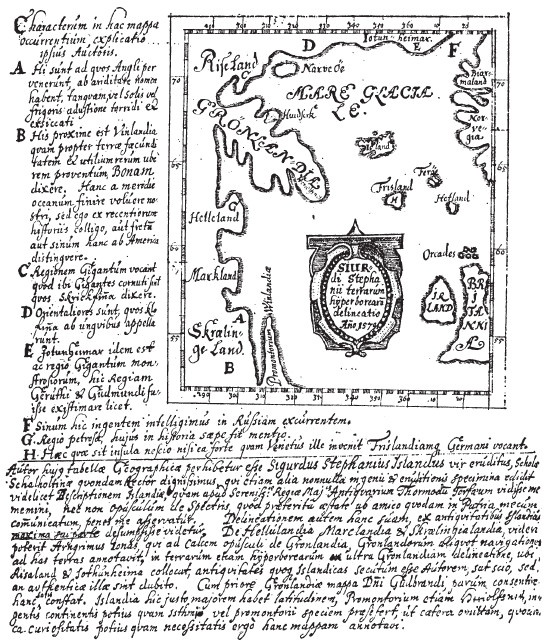 Characterum in hac mappa
occurrentium explicatio
ipsius Auctoris.
A Hi sunt ad quos Angli per
venerunt, ab ariditate nomen
habent, tanquam vel solis vel
frigoris adustione torridi et
exsiccati
B His proxime est Vinlandia
quam propter terræ fæcundi
tatem et utilium rerum ube
rem proventum, Bonam
dixere. Hanc a meridie
oceanum finire voluere no
stri, sed ego ex recentiorum
historiis colligo, aut fretum
aut sinum hanc ab America
distinguere.
C Regionem Gigantum vocant
quod ibi Gigantes cornuti sint
quos Skrickfinna dixere.
D Orientaliores sunt, quos klo
fina ab unguibus appella
runt.
E Jotunheimar idem est
ac regio Gigantum mon
strosorum, hic Regiam
Geruthi & Gudmundi fu
isse existimare licet.
F Sinum hic ingentem intelligimus in Russiam excurrentem.
G. Regio petrosa, hujus in historia sæpe fit mentio.
H. Hæc quæ sit insula nescio nisi ea forte quam Venetus ille invenit Frislandiamq Germani vocant
Riseland
Narve Oe
D
Jotun-heimar.
E
F
Biar-
maland
Nor-
ve-
gia.
MARE GLACIA
LE.
C
GRÖNLANDIA
Huidserk
Island
Frisland
H
Feroe
Hetland
G
Helleland
Orcades
Markland
IR
LAND
BRI
TANNI
A
SIUR-
di Stepha
nii terrarum
hyperborearū
delineatio
Año 1570
A
Skralin-
ge Land.
B
Promontorium Winlandiæ
70
65
60
55
70
65
60
55
Autor hujg tabellæ Geographicæ perhibetur esse Sigurdus Stephanius Islandus vir eruditus, Scholæ
Schalholtinæ quondam Rector dignissimus, qui etiam alia nonnulla ingenii & eruditionis specimina edidit
videlicet Descriptionem Islandiæ, quam apud Sereniss: Regiæ Maj: Antiqvarium Thormodū Torfæum vidisse me
memini, nec non opusculum de Spectris, quod præterito æstate ab amico quodam in Patria mecum
comunicatum, penes me asservatur. Delineationem autem hanc suam, ex antiquitatibus Islandicis
maxima sui parte desumpsisse videtur. De Hellulandia, Marclandia & Skralingialandia, videri
poterit Arngrimus Ionas, qui ad calcem opusculi de Gronlandia, Gronlandorum aliquot navigationes
ad has terras annotavit, in terrarum etiam hyperborearum ad ultra Gronlandiam delineatione, ubi
Risaland & Jothunheimæ collocat, antiquitates quoq Islandicas secutum esse Autorem, sat scio, sed,
an authenticæ illæ sint dubito. Cum priore Gronlandiæ mappa Dñi Gudbrandi parum consentire
hanc, constat. Islandia hic justo majorem habet latitudinem, Promontorium etiam Herioffsnes, in-
gentis continentis potius quam Isthmi vel promontorii speciem præsefert, ut cætera omittam, quoniam
ca curiositatis potius quam necessitatis ergo hanc mappam annotavi.